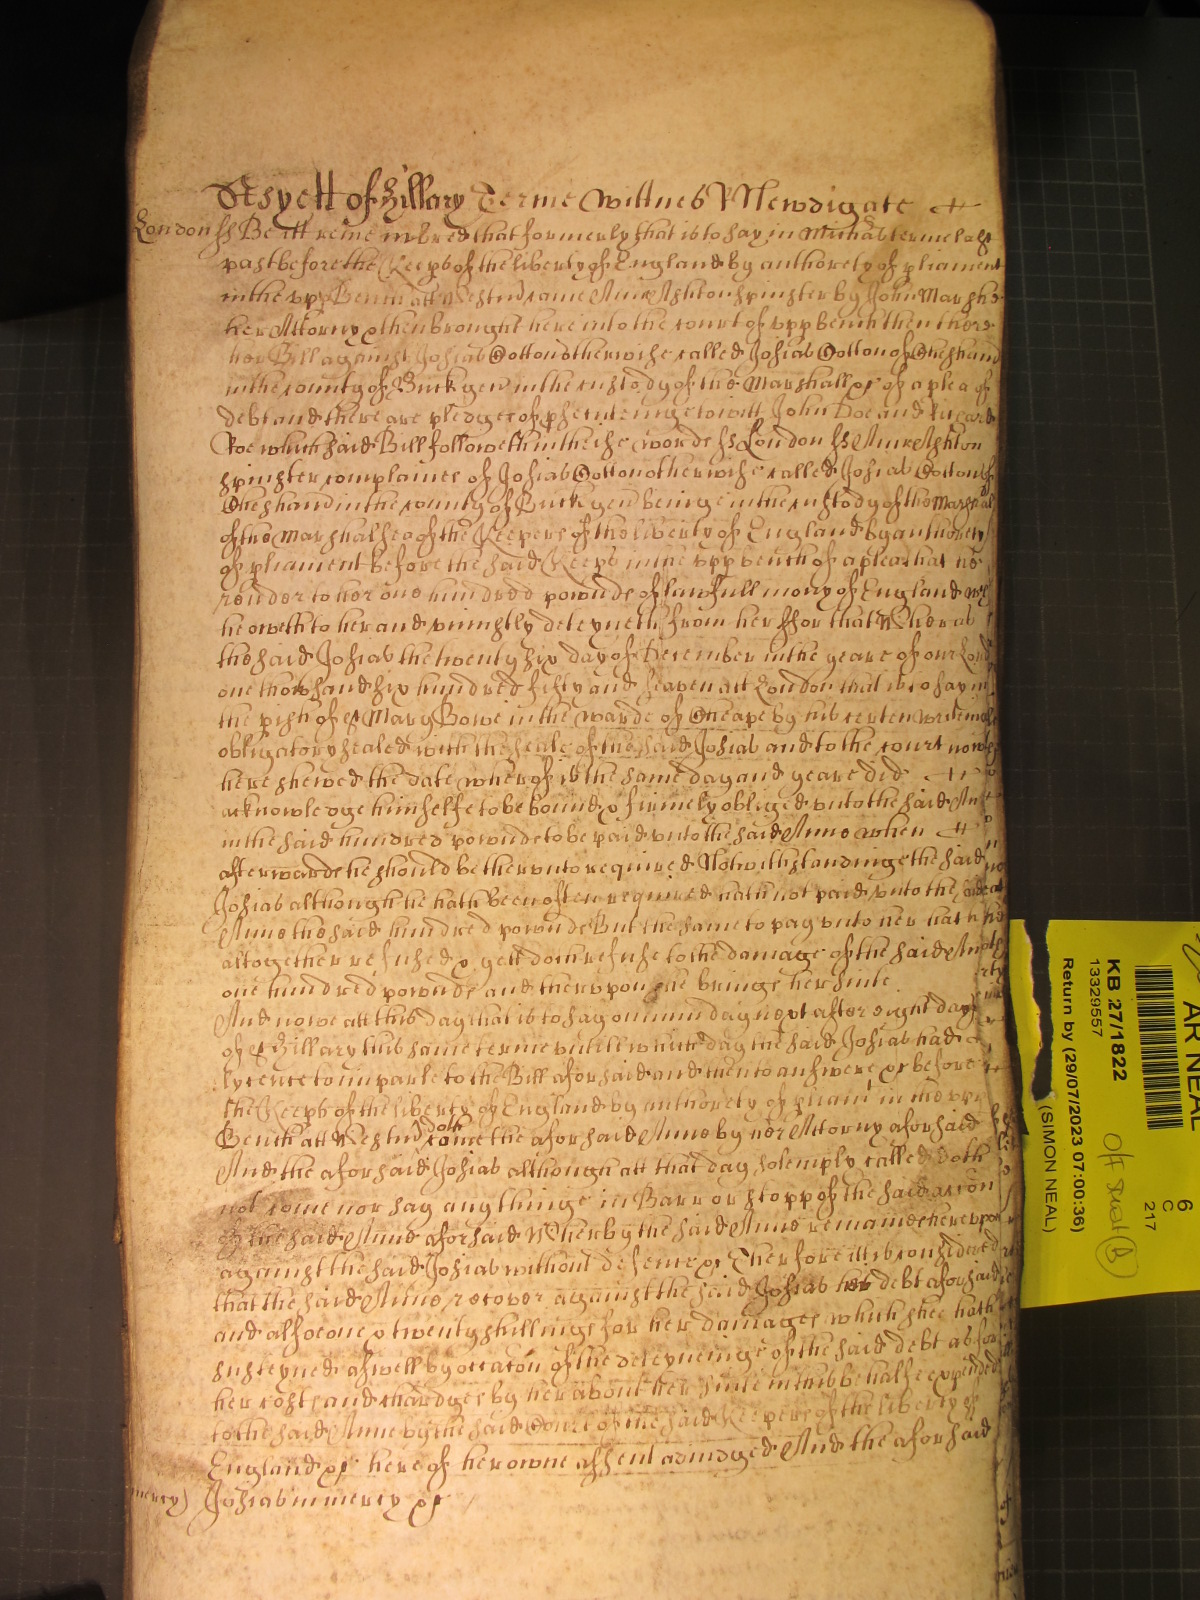 As yett of Hillary Terme Wittnes R Newdigate
London ss Be itt remembred that formerly that is to say in Michas terme last
past before the Keeps of the liberty of England by authorety of pliament
in the upp Bench att Westmr came Anne Ashton spinster by John Marshe
her Attorny & then brought here into the court of upp bench then there
her Bill against Josias Cotton otherwise called Josias Cotton of Chesham
in the county of Buck gen in the custody of the Marshall &c of a plea of
debt and there are pledges of psecuteinge to witt John Doe and Richard
Roe which said Bill followeth in theise words ss London ss Anne Ashton
spinster complaines of Josias Cotton otherwise called Josias Cotton of
Chesham in the county of Buck gen beinge in the custody of the Marshall
of the Marshalsea of the Keepers of the liberty of England by authorety
of pliament before the said Keeps in the upp bench of a plea that he
render to her one hundred pownds of lawfull mony of England wch
he oweth to her and uniustly deteyneth from her ffor that Wheras
the said Josias the twenty six day of December in the yeare of our Lord
one thowsand six hundred fifty and seaven att London that is to say in
the pish of St Mary Bowe in the warde of Cheape by his certen writeinge
obligatory sealed with the seale of the said Josias and to the court nowe
here shewed the date wherof is the same day and yeare did
acknowledge himselfe to be bound & firmely obliged unto the said Anne
in the said hundred pownds to be paid unto the said Anne when
afterwards he should be therunto required Notwithstandinge the said
Josias although he hath been often required hath not paid unto the said
Anne the said hundred pownds But the same to pay unto her hath
altogether refused & yett doth refuse to the damage of the said Anne
one hundred pownds and therupon she brings her suite
And nowe att this day that is to say on munday next after eight dayes
of St Hillary this same terme untill which day the said Josias had
lycence to imparle to the Bill aforsaid and then to answere &c before
the Keeps of the liberty of England by authorety of pliamt in the upp
Bench att Westmr doth come the aforsaid Anne by her Attorny aforsaid
And the aforsaid Josias although att that day solemply called doth
not come nor say anythinge in Barr or stopp of the said accon
of the said Anne aforsaid Wherby the said Anne remaines therupon
against the said Josias without defence &c Therfore itt is considered
that the said Anne recover against the said Josias her debt aforsaid
and alsoe one & twenty shillings for her damages which shee hath
susteyned aswell by occacon of the deteyneinge of the said debt as for
her costs and chardges by her about her suite in this behalfe expended
to the said Anne by the said Court of the said Keepers of the liberty of
England &c here of her owne assent adiudged And the aforsaid
mercy) Josias in mercy &c
AR NEAL
KB 27/1822
13329557
Return by (29/07/2023 07:00:36)
(SIMON NEAL)
6
C
217
Off
B